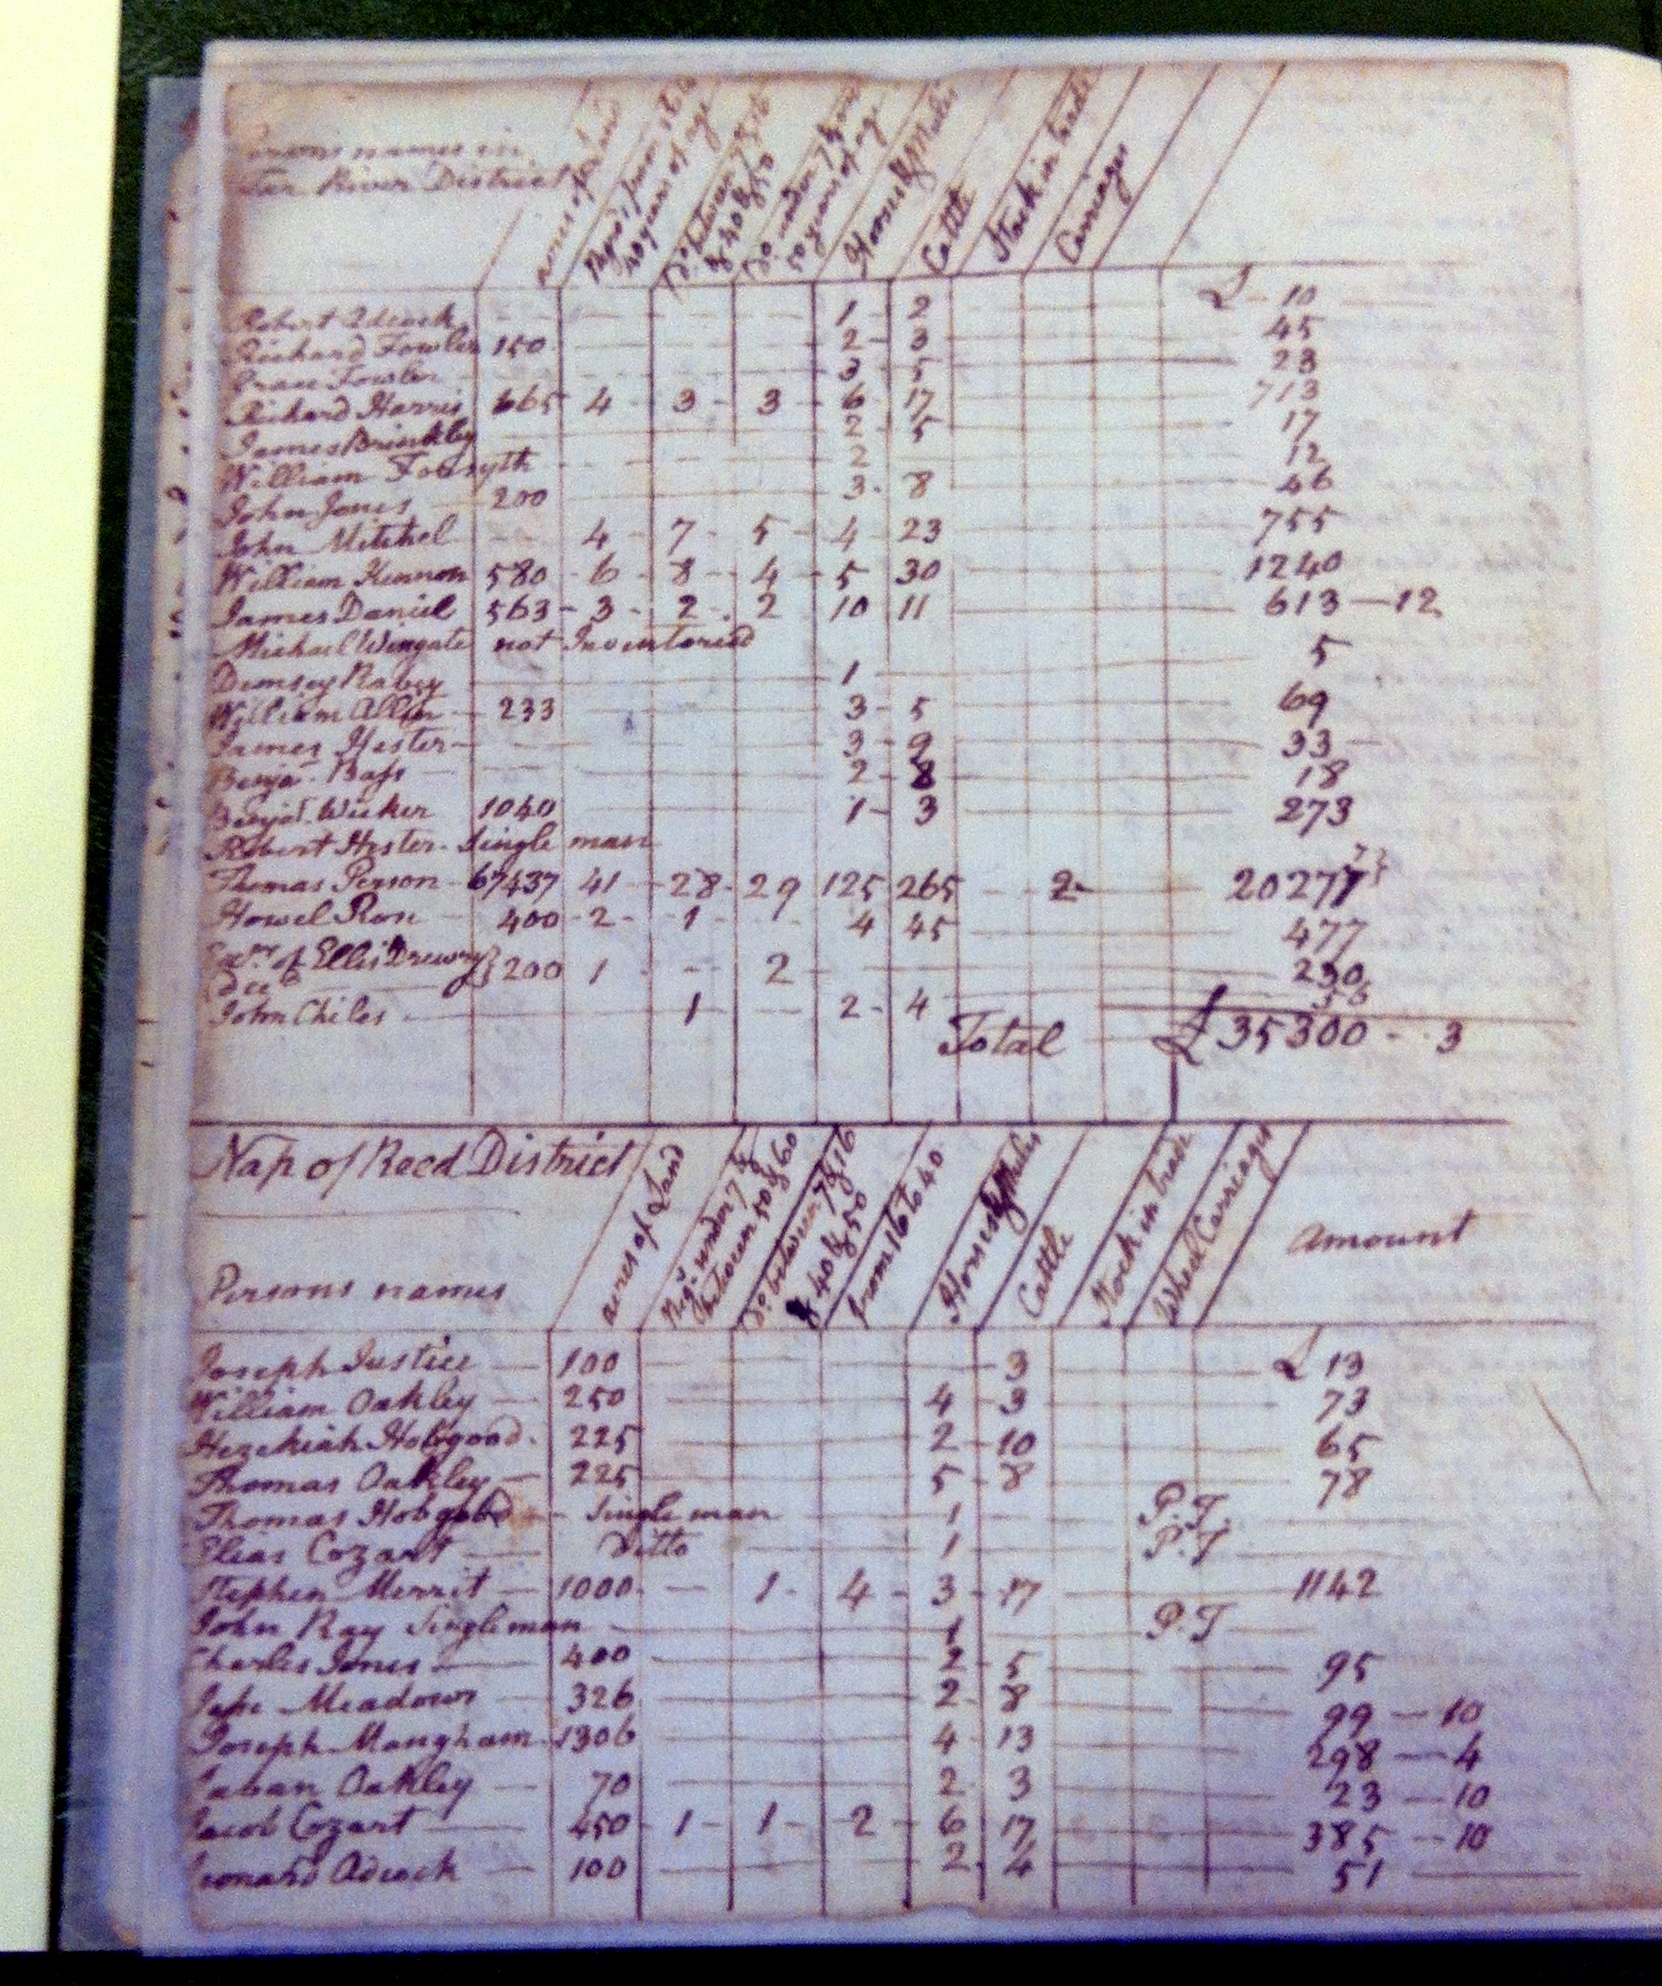 Persons names in
Tar River District
acres of Land
Negro's from 16 to 40 years of age
Do. between 7 & 16 & 40 & 50
Do. under 7 & from 50 years of age
Horses & Mules
Cattle
Stock in trade
Carriages
Robert Adcock 1 2 £ 10
Richard Fowler 150 2 3 45
Fowler 3 5 23
Richard Harris 665 4 3 3 6 17 713
James Brinkley 2 5 17
William Forsyth 2 12
John Jones 200 3 8 46
John Mitchel 4 7 5 4 23 755
William Kennon 580 6 8 4 5 30 1240
James Daniel 563 3 2 2 10 11 613-12
Michael Wingate not Inventoried
Demsey Rabey 1 5
William Allen 233 3 5 69
James Hester 3 9 33
Benja. Bass 2 8 18
Benja. Wicker 1040 1 3 273
Robert Hester Single man
Thomas Person 67437 41 28 29 125 265 2 20277
Howel Rose 400 2 1 4 45 477
Exrs. of Ellis Drewry
Decd 200 1 2 230
John Chiles 1 2 4 56
Total £ 35300-3
Nap of Reed District
Persons names
acres of Land
Negs. under 7 & between 50 & 60
Do. between 7 & 16 & 40 & 50
from 16 to 40
Horses & Mules
Cattle
Stock in trade
Wheel Carriages
Amount
Joseph Justice 100 3 £ 13
William Oakley 250 4 3 73
Hezekiah Hobgood 225 2 10 65
Thomas Oakley 225 5 8 78
Thomas Hobgood Single man 1 P.T.
Elias Cozart Ditto 1 P.T
Stephen Merrit 1000 1 4 3 17 1142
John Ray Single man 1 P.T
Charles Jones 400 2 5 95
Meadows 326 2 8 99-10
Joseph Mangham 1306 4 13 298-4
Oakley 70 2 3 23-10
Jacob Cozart 450 1 1 2 6 17 385-10
Leonard Adcock 100 2 4 51